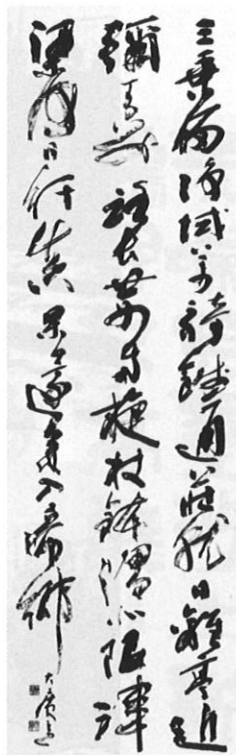 三乘歸淨域萬騎餞通莊就日離亭近
彌天別路長荊南旋杖鉢渭北限津
梁何日紆真果還來入帝鄉